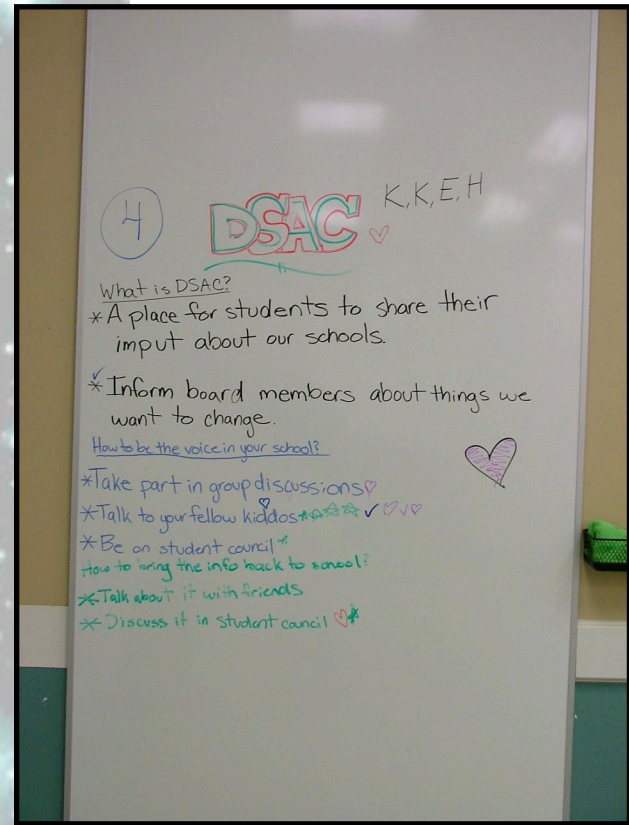 4 DSAC K, K, E, H
What is DSAC?
* A place for students to share their
imput about our schools.
* Inform board members about things we
want to change.
How to be the voice in your school?
* Take part in group discussions
* Talk to your fellow kiddos
* Be on student council
How to bring the info back to school?
* Talk about it with friends
* Discuss it in student council